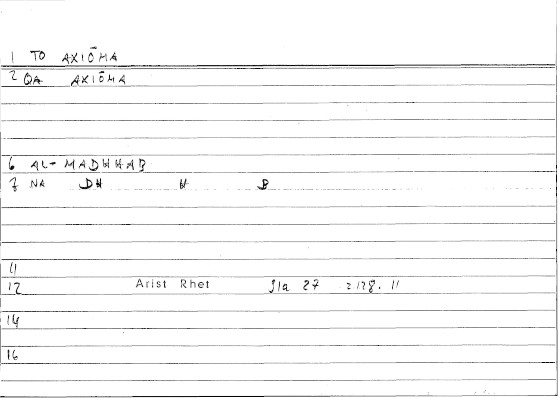 1 TO AXIŌMA
2 QA AXIŌMA
6 AL-MADHHAB
7 NA DH H B
11
12 Arist Rhet 91a 27 = 178. 11
14
16